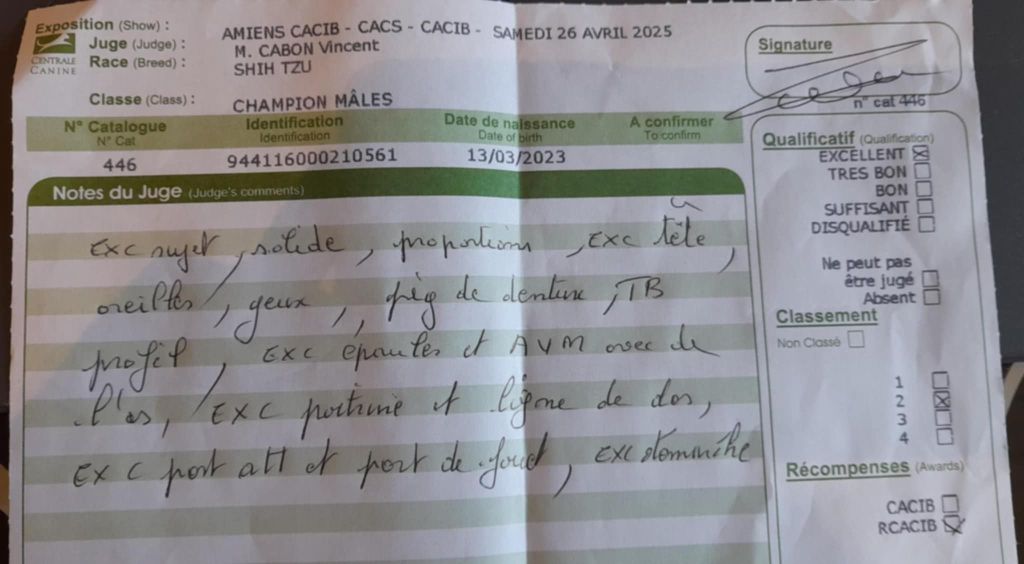 Exposition (Show) : AMIENS CACIB - CACS - CACIB - SAMEDI 26 AVRIL 2025
CENTRALE CANINE
Juge (Judge) : M. CABON Vincent
Race (Breed) : SHIH TZU
Classe (Class) : CHAMPION MÂLES
Signature
n° cat 446
N° Catalogue Identification Date de naissance A confirmer
N° Cat Identification Date of birth To confirm
446 944116000210561 13/03/2023
Notes du Juge (Judge's comments)
Exc sujet, solide, proportions, Exc tête,
oreilles, yeux, pig de denture, TB
profil, Exc épaules et AVM avec de
l'os, Exc poitrine et ligne de dos,
Exc port att et port de fouet, Exc
Qualificatif (Qualification)
EXCELLENT
TRES BON
BON
SUFFISANT
DISQUALIFIÉ
Ne peut pas
être jugé
Absent
Classement
Non Classé
1
2
3
4
Récompenses (Awards)
CACIB
RCACIB